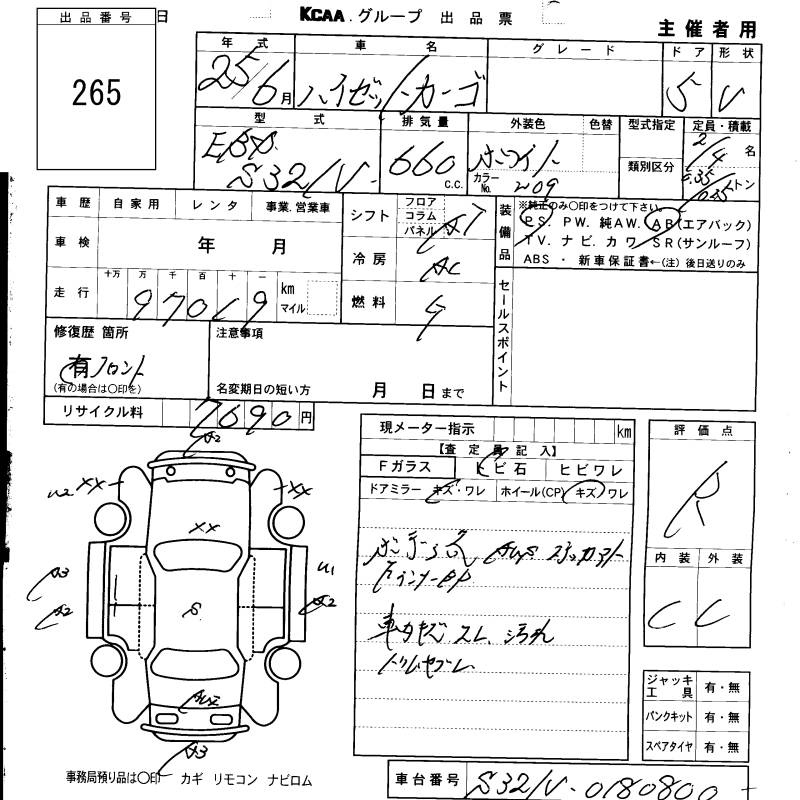 出品番号
日
KCAA.グループ 出品票
主催者用
265
年式 車名 グレード ドア 形状
25/6月 ハイゼットカーゴ 5 V
型式 排気量 外装色 色替 型式指定 定員・積載
EBD-S321V 660 c.c. ホワイト 2/4 名
カラーNo. 209 類別区分 0.35/0.25 トン
車歴 自家用 レンタ 事業.営業車
シフト フロア コラム パネル AT
装備品
※純正のみ○印をつけて下さい。
P.S. PW. 純AW. AB(エアバック)
TV. ナビ. カワ SR(サンルーフ)
ABS ・ 新車保証書←(注)後日送りのみ
車検 年 月
冷房 AC
走行 十万 万 千 百 十 一 km マイル
97019
燃料 G
セールスポイント
修復歴 箇所
有 フロント
(有の場合は○印を)
注意事項
名変期日の短い方 月 日まで
リサイクル料 7690円
現メーター指示 km
【査定員記入】
Fガラス トビ石 ヒビワレ
ドアミラー キズ・ワレ ホイール(CP) キズ/ワレ
評価点
R
内装 外装
C C
A2
W2 XX XX
XX
A3
A2
U1
A2
S
A3
車内キズ スレ 汚れ
ジャッキ工具 有・無
パンクキット 有・無
スペアタイヤ 有・無
事務局預り品は○印 カギ リモコン ナビロム
車台番号 S321V-0180800